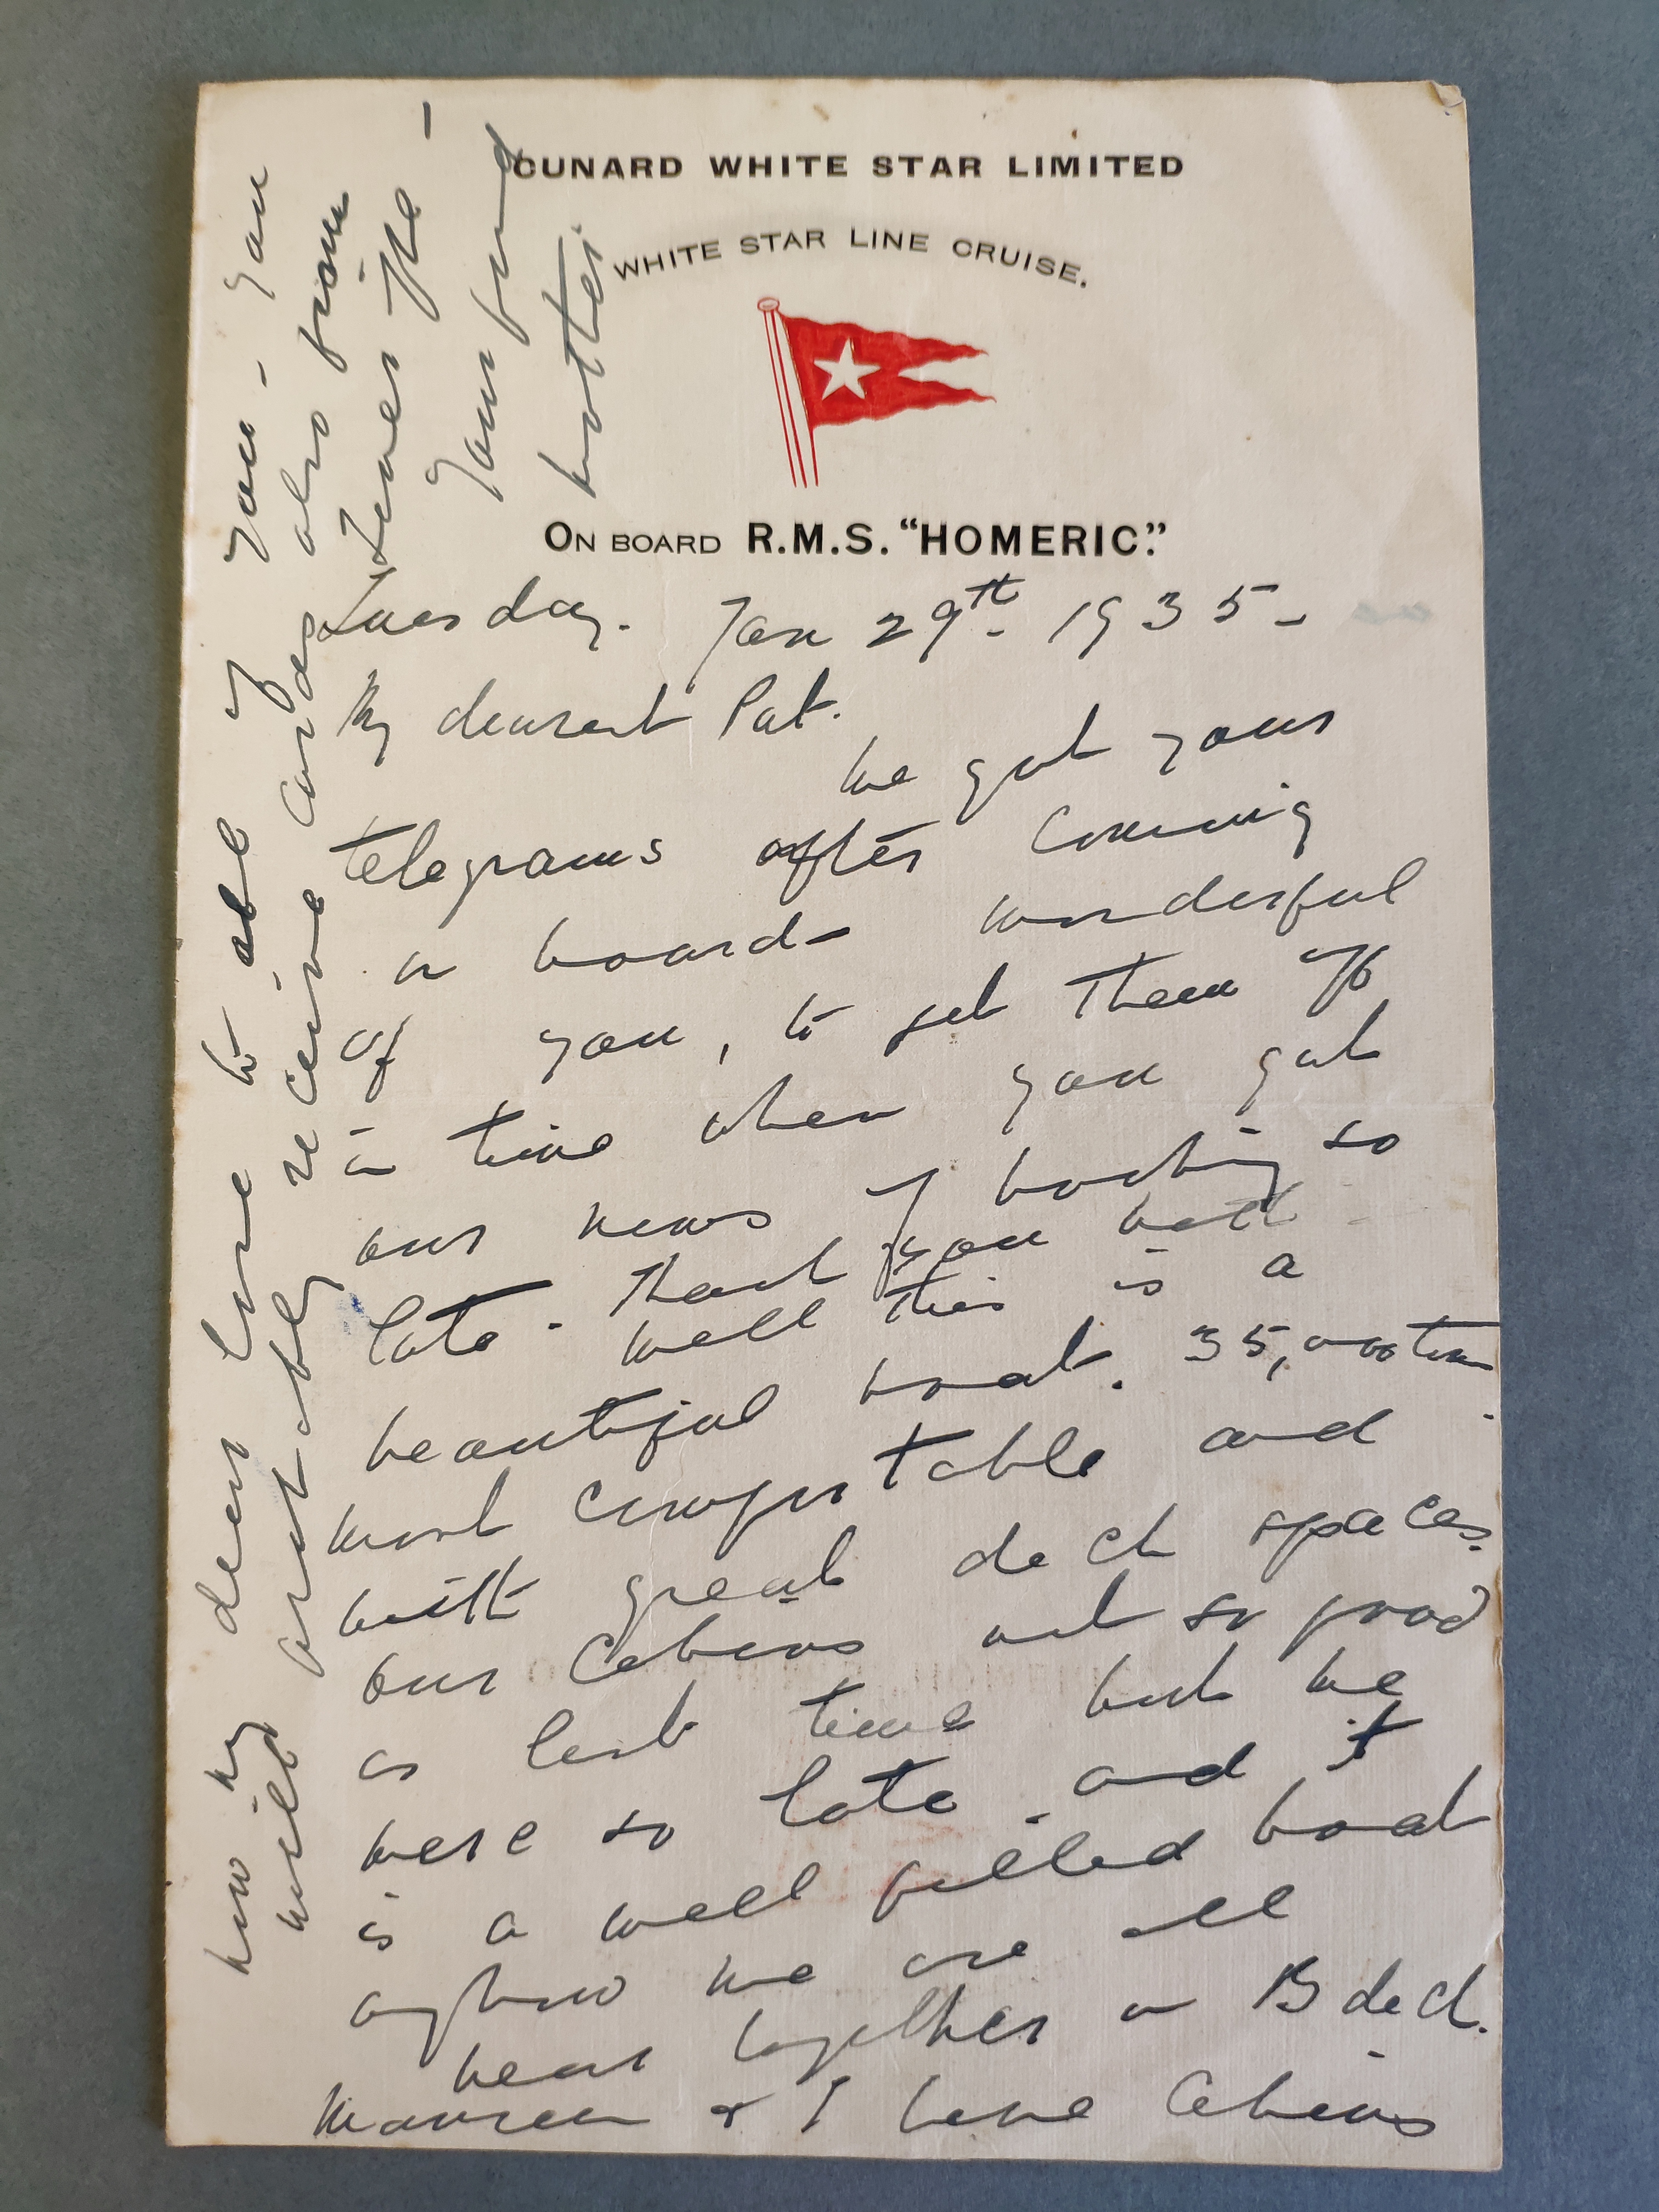 CUNARD WHITE STAR LIMITED
WHITE STAR LINE CRUISE.
ON BOARD R.M.S. "HOMERIC".
Tuesday. Jan 29th. 1935-
My dearest Pat.
We got your
telegrams after coming
on board - wonderful
of you, to get them off
in time when you got
our news of booking so
late - Thank you both
well this is a
beautiful boat. 35,000 tons
most comfortable and
with great deck spaces.
our Cabins not so good
as last time but we
were so late. and it
is a well filled boat
anyhow we are all
near together on B deck.
Maureen & I have Cabins
now my dear love to all of you - you
will probably receive cards also from
Tenerife -
Your fond
mother